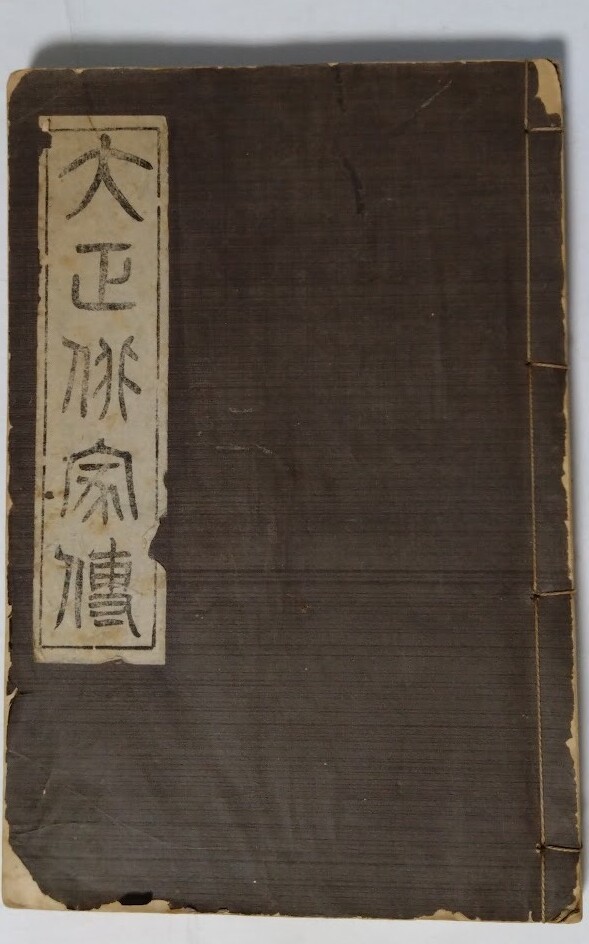 大正俳家傳